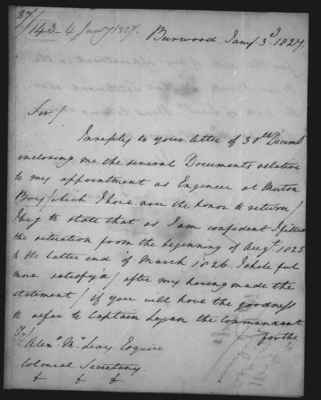 27/142 4 Jany 1827.
Burwood Jany 3d. 1827
Sir/
In reply to your letter of 30th Decemb
enclosing me the several Documents relative
to my appointment as Engineer at Moreton
Bay (which I have now the honor to return)
I beg to state that as I am confident I filled
the situation from the beginning of Augt. 1825
to the latter end of March 1826 I shall feel
more satisfyd (after my having made the
statement) if you will have the goodness
to refer to Captain Logan the Commandant
for the
To/
Alexr. McLeay Esquire
Colonial Secretary